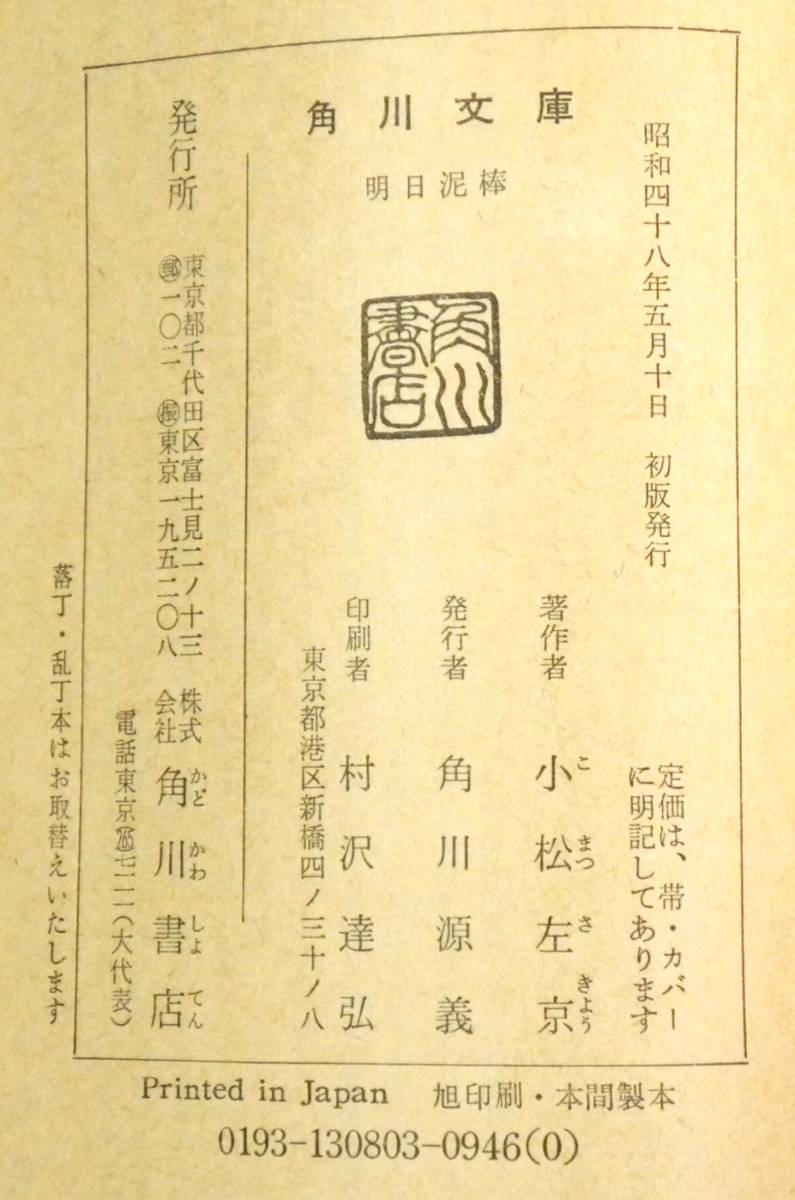 角川文庫
明日泥棒
昭和四十八年五月十日　初版発行
定価は、帯・カバー
に明記してあります
著作者　小松左京
こまつさきよう
発行者　角川源義
印刷者　村沢達弘
東京都港区新橋四ノ三十ノ八
角川書店
発行所
東京都千代田区富士見二ノ十三
㊩一〇二　振東京一九五二〇八
株式会社　角川書店
かどかわしよてん
電話東京七一一一（大代表）
落丁・乱丁本はお取替えいたします
Printed in Japan　旭印刷・本間製本
0193-130803-0946(0)